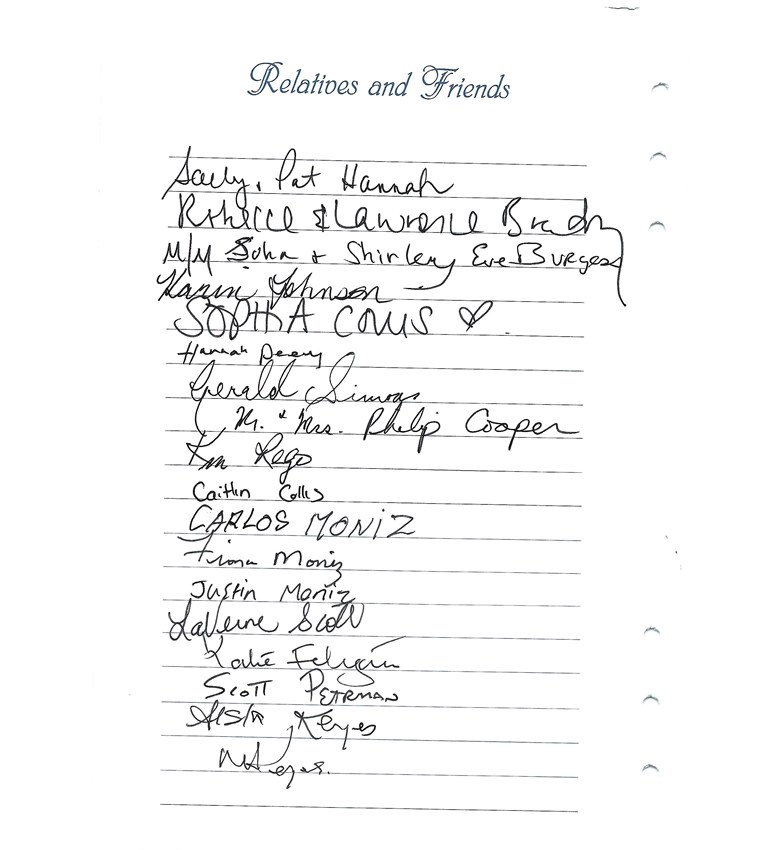 Relatives and Friends
Sally, Pat Hannah
& Lawrence Brady
M/M John & Shirley Eve Burgess
Karin Johnson
SOPHIA COLLIS ♡
Hannah Deery
Gerald Simons
Mr. & Mrs. Philip Cooper
Kim Rego
Caitlin Collis
CARLOS MONIZ
Fiona Moniz
Justin Moniz
LaVerne Scott
Katie
SCOTT PETRMAN
Keyes